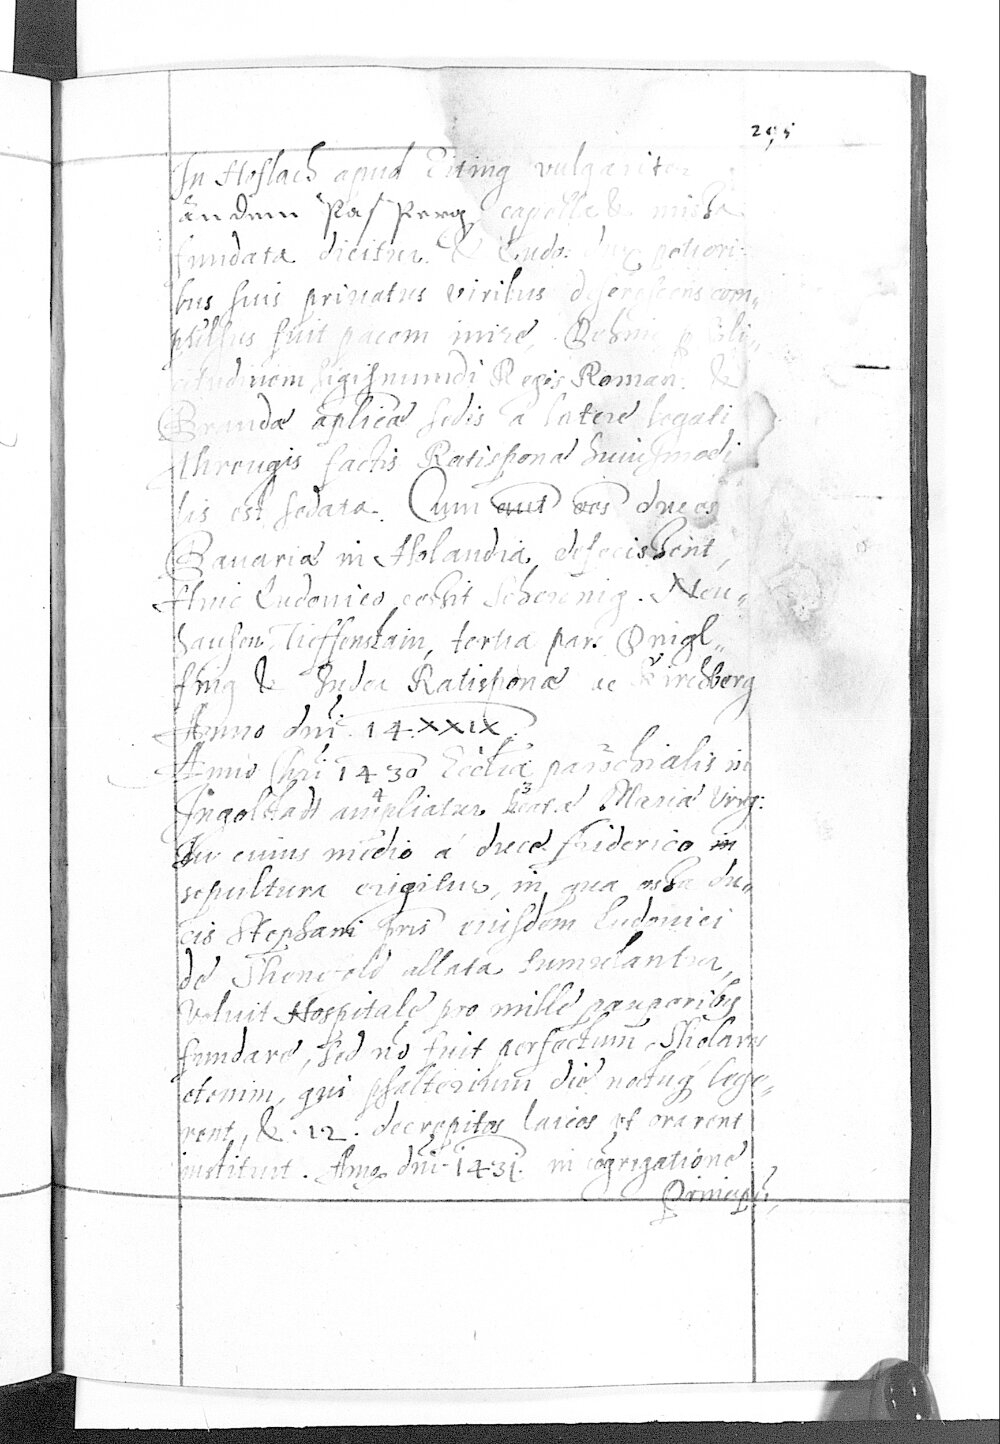 295
In Hoflach apud Eiting vulgariter
an dem Pas Perg, capella & missa
fundata dicitur. & Ludo: dux potiori-
bus suis privatus viribus descrescens com-
pulsus fuit pacem inire,
citudinem Sigismundi Regis Roman. &
Brandæ aplicæ sedis a latere legati
threugis factis Ratisponæ huiusmodi
lis est sedata. Cum aut oēs duces
Bavariæ in Holandia defecissent,
Huic Ludovico cessit Scherenig. Neu-
hausen, Tieffenstain, tertia pars
& Judea Ratisponæ ac Kirchberg
Anno dni. 14XXIX.
Anno 1430 Ecclia parochialis in
Ingolstadt ampliatur beatæ Mariæ Virg:
In cuius medio a duce friderico in
sepultura erigitur, in qua ossa du-
cis Stephani pris eiusdem Ludovici
de allata tumulantur,
voluit Hospitale pro mille pauperibus
fundare, sed nō fuit perfectum. Scholares
etenim, qui psalterium die noctuq lege-
rent, & .12. decrepitos laicos ut orarent
instituit. Anno dni. 1431. in cōgregatione
Principū,